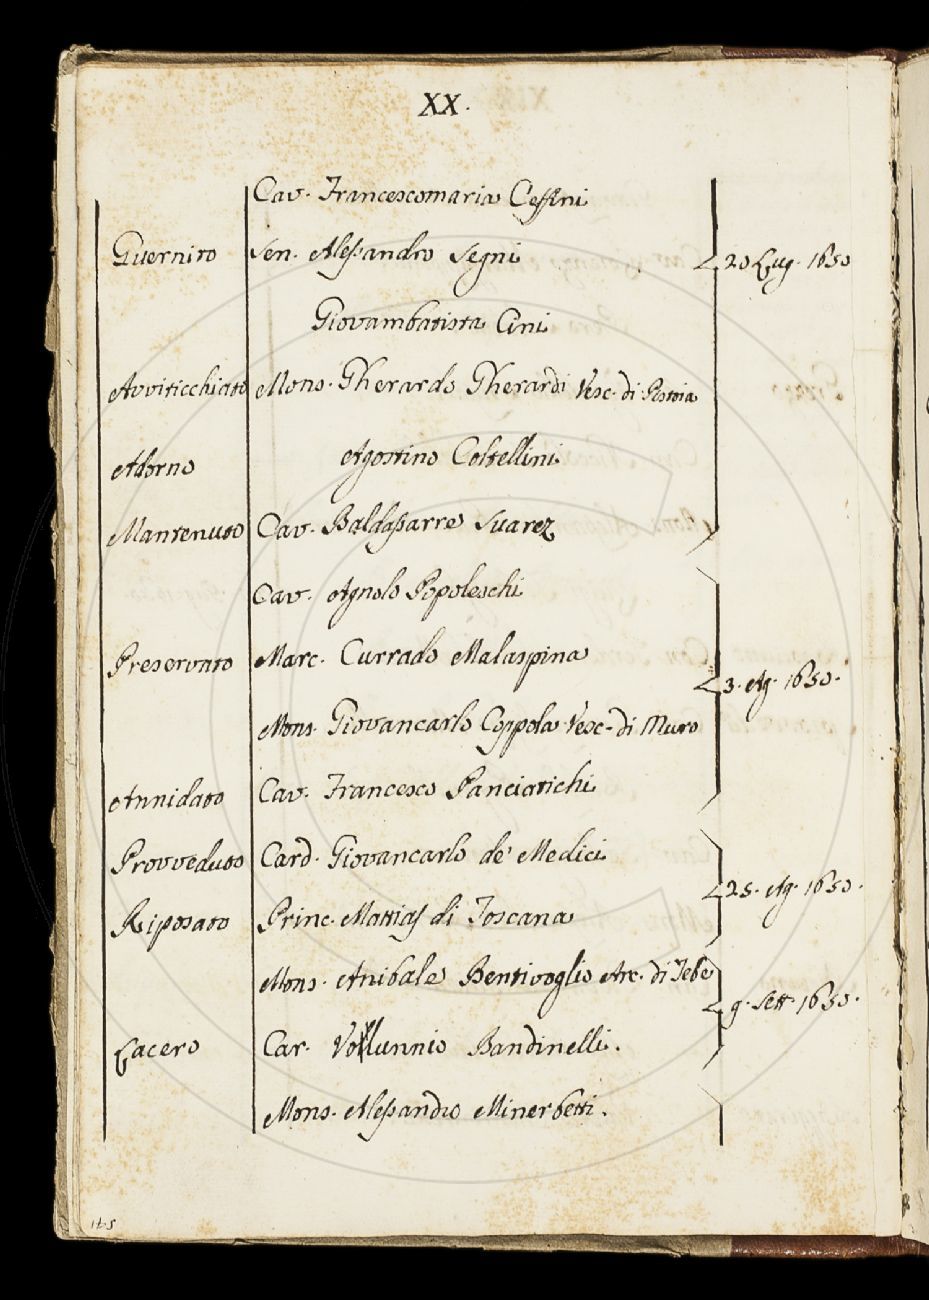 XX.
Cav. Francescomaria Ceffini
Guernito Sen. Alessandro Segni 20 Lug. 1650
Giovambatista Cini
Avviticchiato Mons. Gherardo Gherardi Vesc. di Pistoia
Adorno Agostino Coltellini
Mantenuto Cav. Baldassarre Suarez
Cav. Agnolo Popoleschi
Preservato Marc. Currado Malaspina 3. Ag. 1650.
Mons. Giovancarlo Coppola Vesc. di Muro
Annidato Cav. Francesco Panciatichi
Provveduto Card. Giovancarlo de' Medici
25. Ag. 1650.
Riposato Princ. Mattias di Toscana
Mons. Anibale Bentivoglio Arc. di Tebe
9. Sett. 1650.
Lacero Car. Volunnio Bandinelli.
Mons. Alessandro Minerbetti.